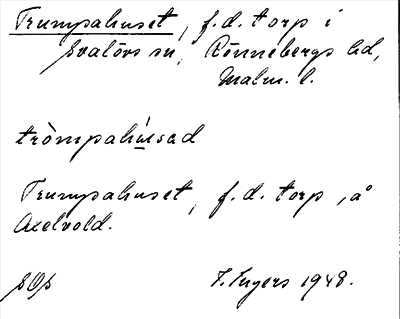 Trumpahuset, f.d. torp i
Svalövs sn, Rönnebergs hd,
Malm. l.
tròmpahu̇̀sad
Trumpahuset, f.d. torp, å
Axelvold.
SOS I. Ingers 1948.